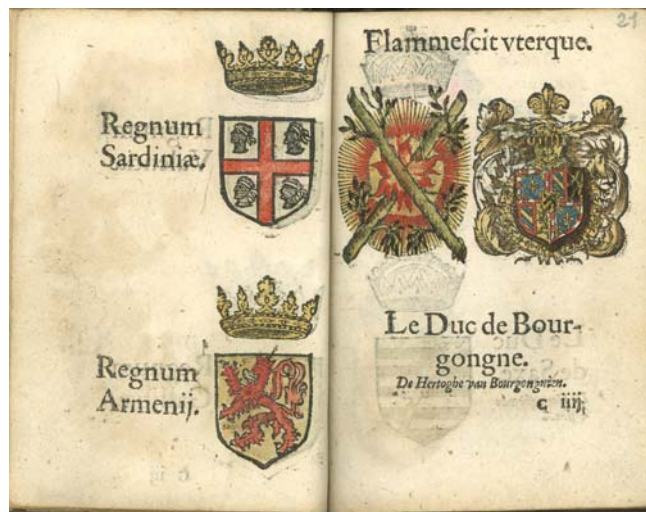 Regnum
Sardiniæ.
Regnum
Armenij.
21
Flammeſcit vterque.
Le Duc de Bour-
gongne.
De Hertoghe van Bourgongnien.
C iiij